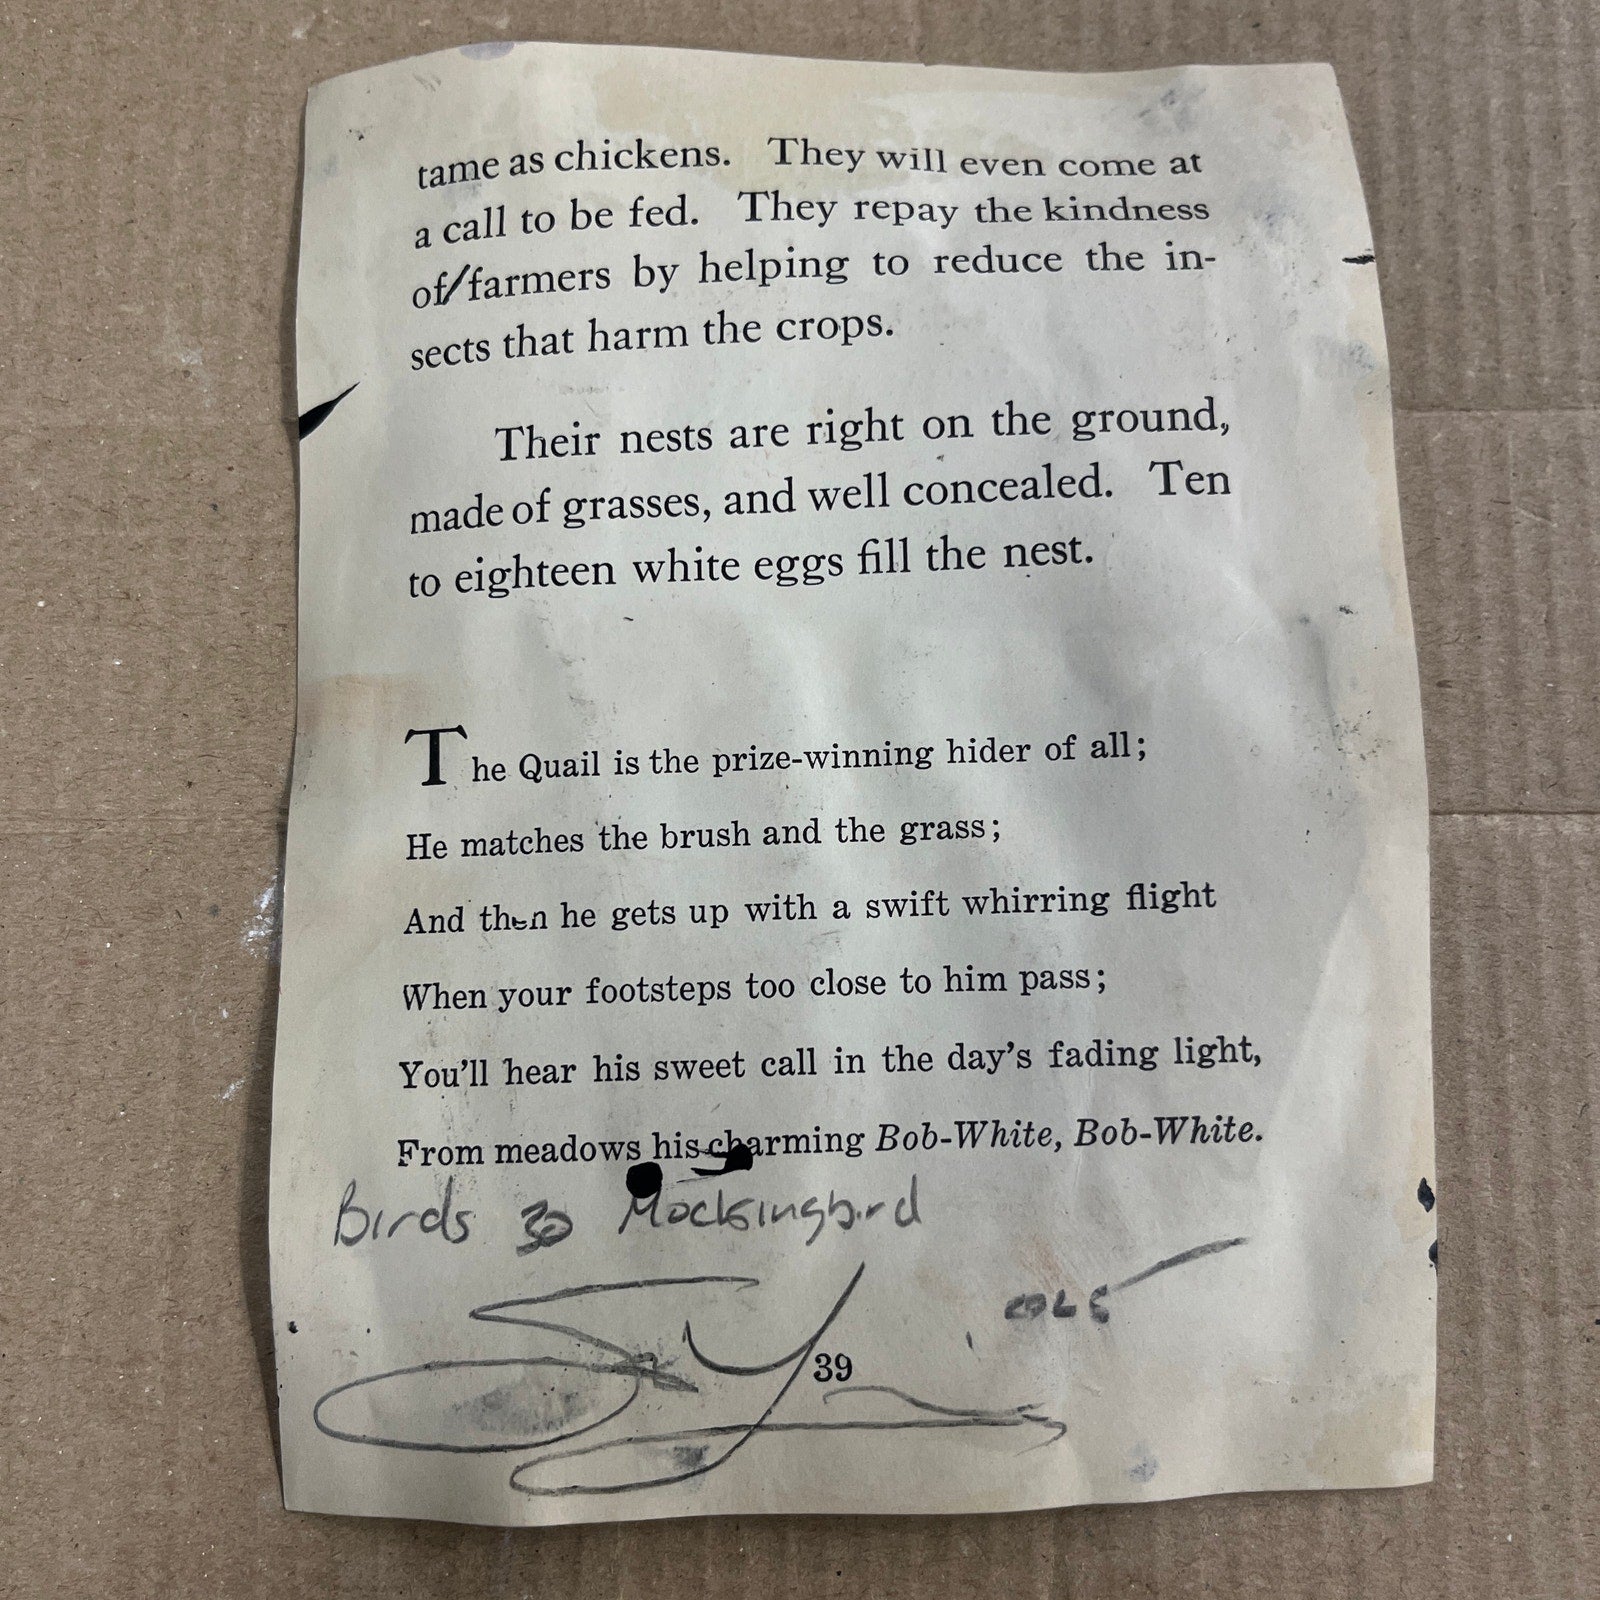 tame as chickens. They will even come at
a call to be fed. They repay the kindness
of/farmers by helping to reduce the in-
sects that harm the crops.
Their nests are right on the ground,
made of grasses, and well concealed. Ten
to eighteen white eggs fill the nest.
The Quail is the prize-winning hider of all;
He matches the brush and the grass;
And then he gets up with a swift whirring flight
When your footsteps too close to him pass;
You'll hear his sweet call in the day's fading light,
From meadows his charming Bob-White, Bob-White.
Birds 30 Mockingbird
39